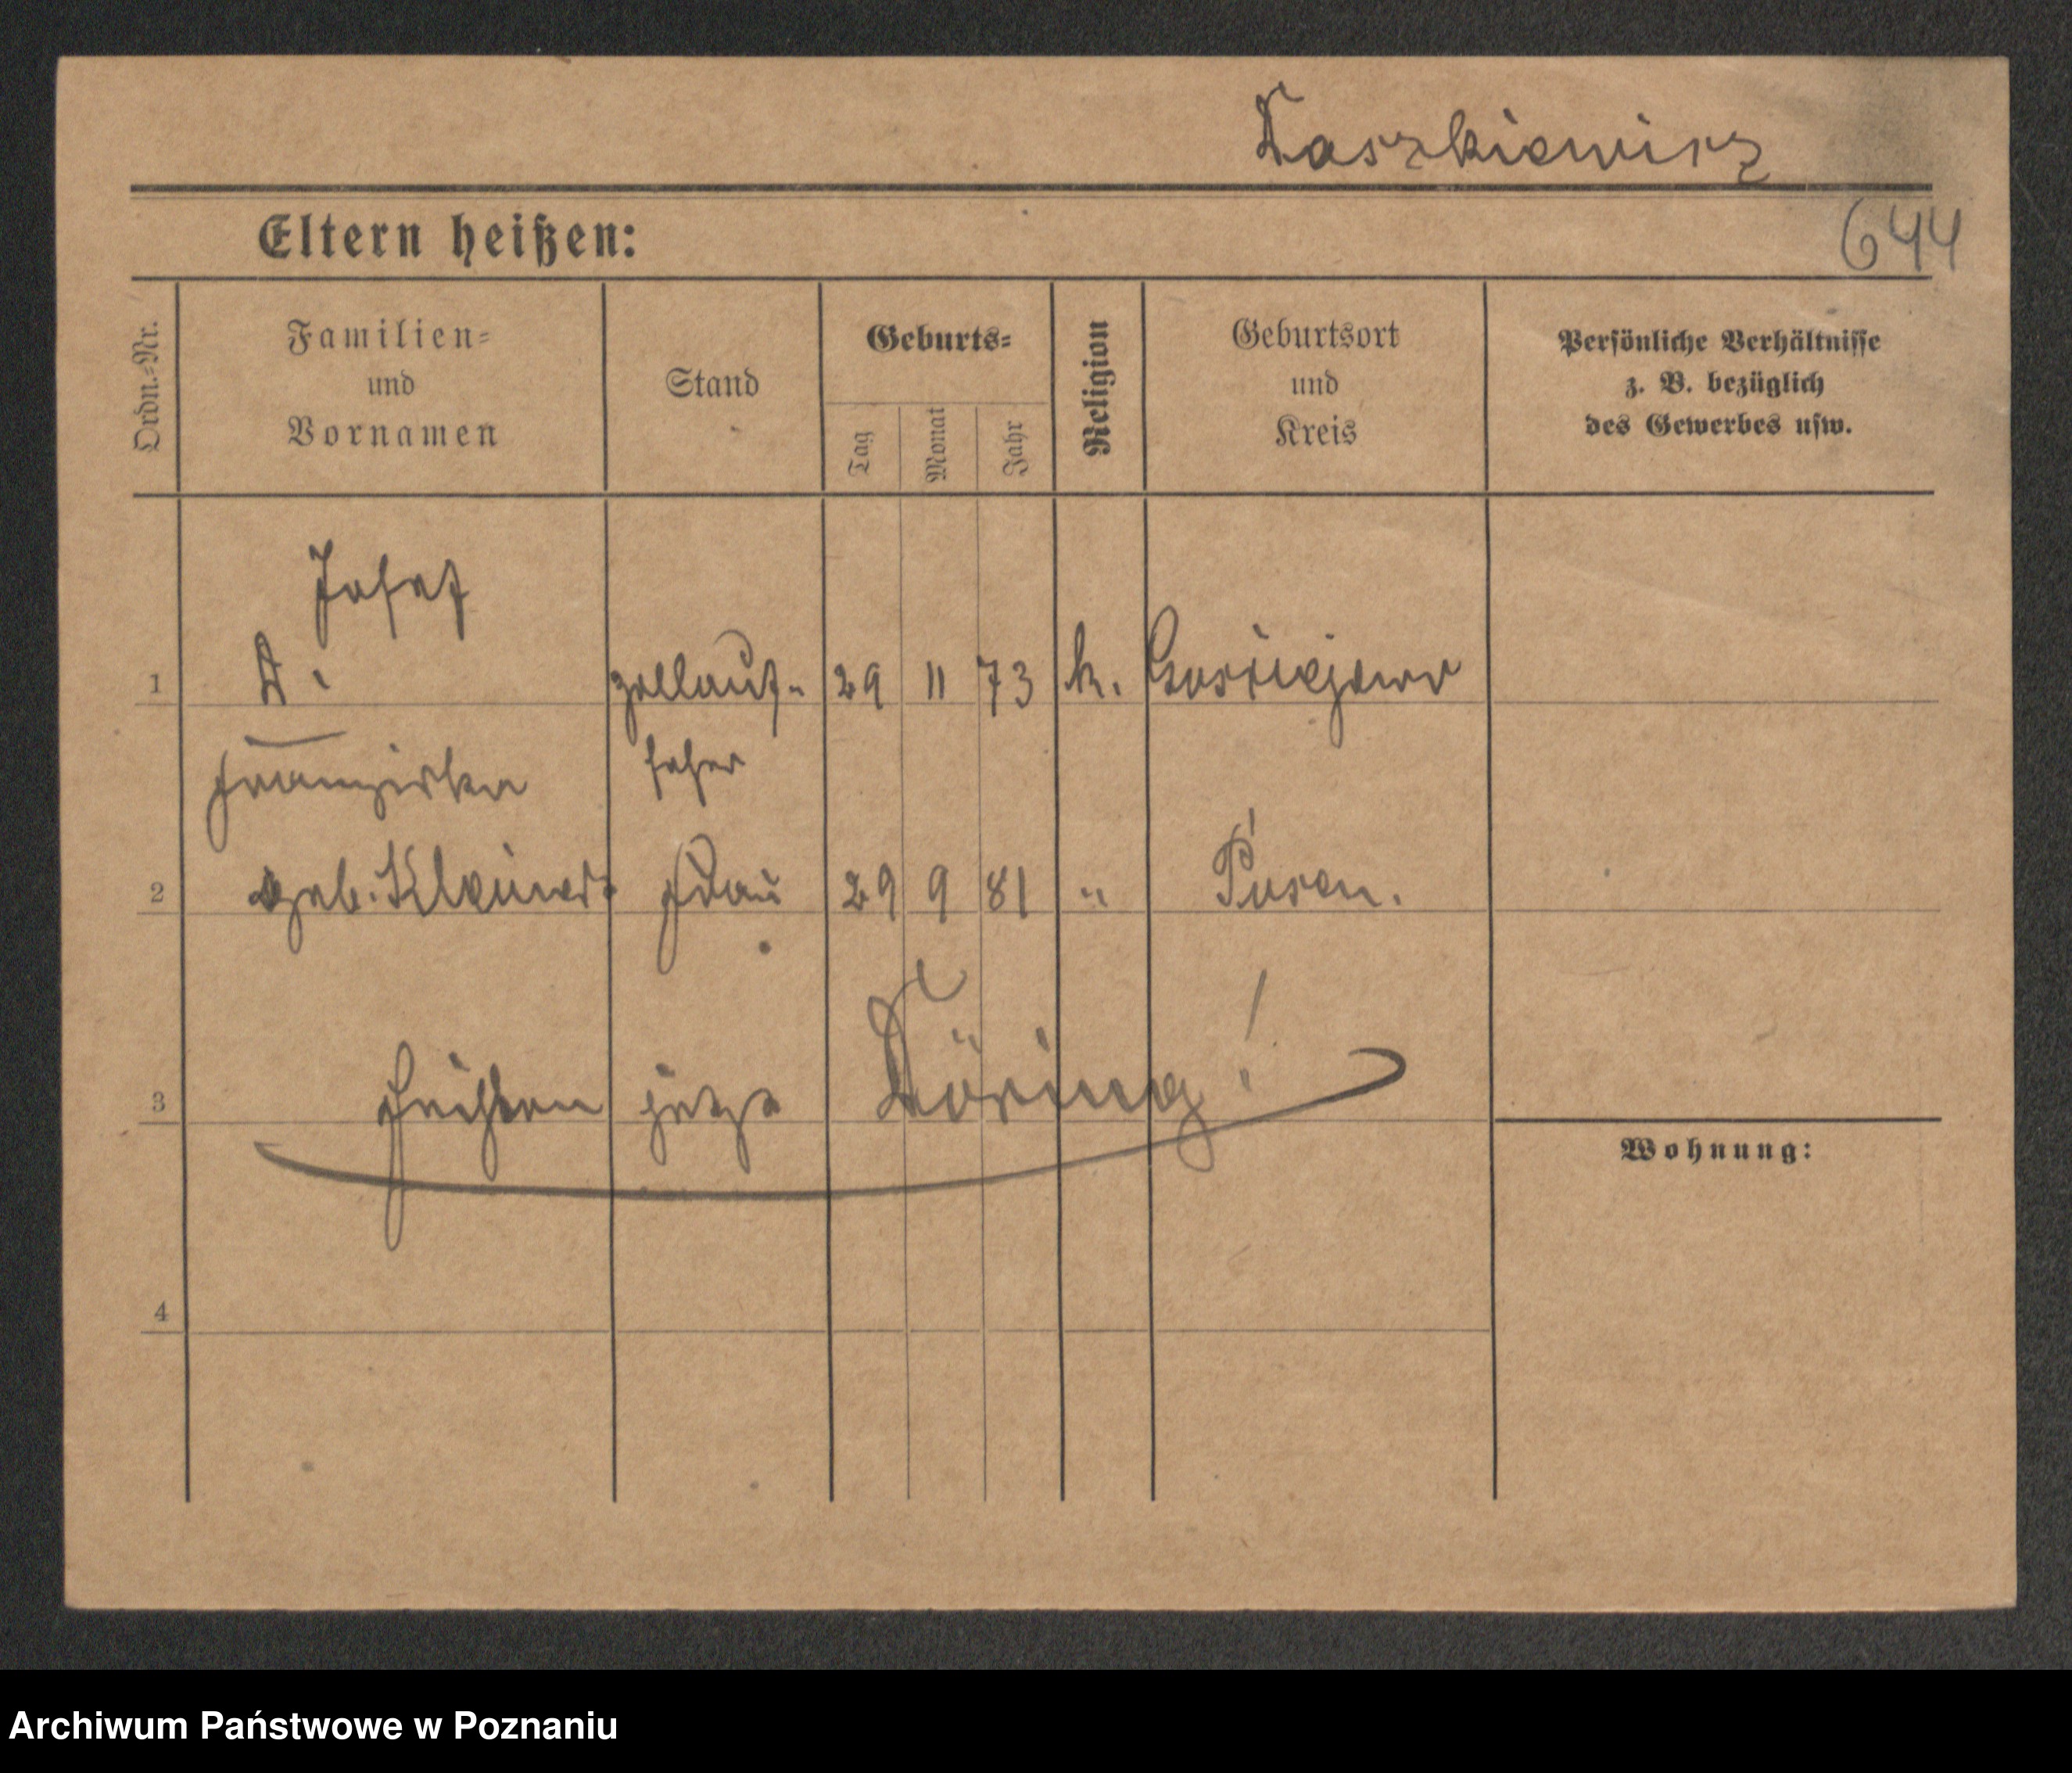 Daszkiewicz
Eltern heißen:
644
Ordn.-Nr.
Familien-
und
Vornamen
Stand
Geburts-
Tag
Monat
Jahr
Religion
Geburtsort
und
Kreis
Persönliche Verhältnisse
z. B. bezüglich
des Gewerbes usw.
Josef
1 D. Zollauf- 29 11 73 k.
Franziska seher
2 geb. Frau 29 9 81 " Posen.
3 jetzt Döring!
Wohnung:
4
Archiwum Państwowe w Poznaniu